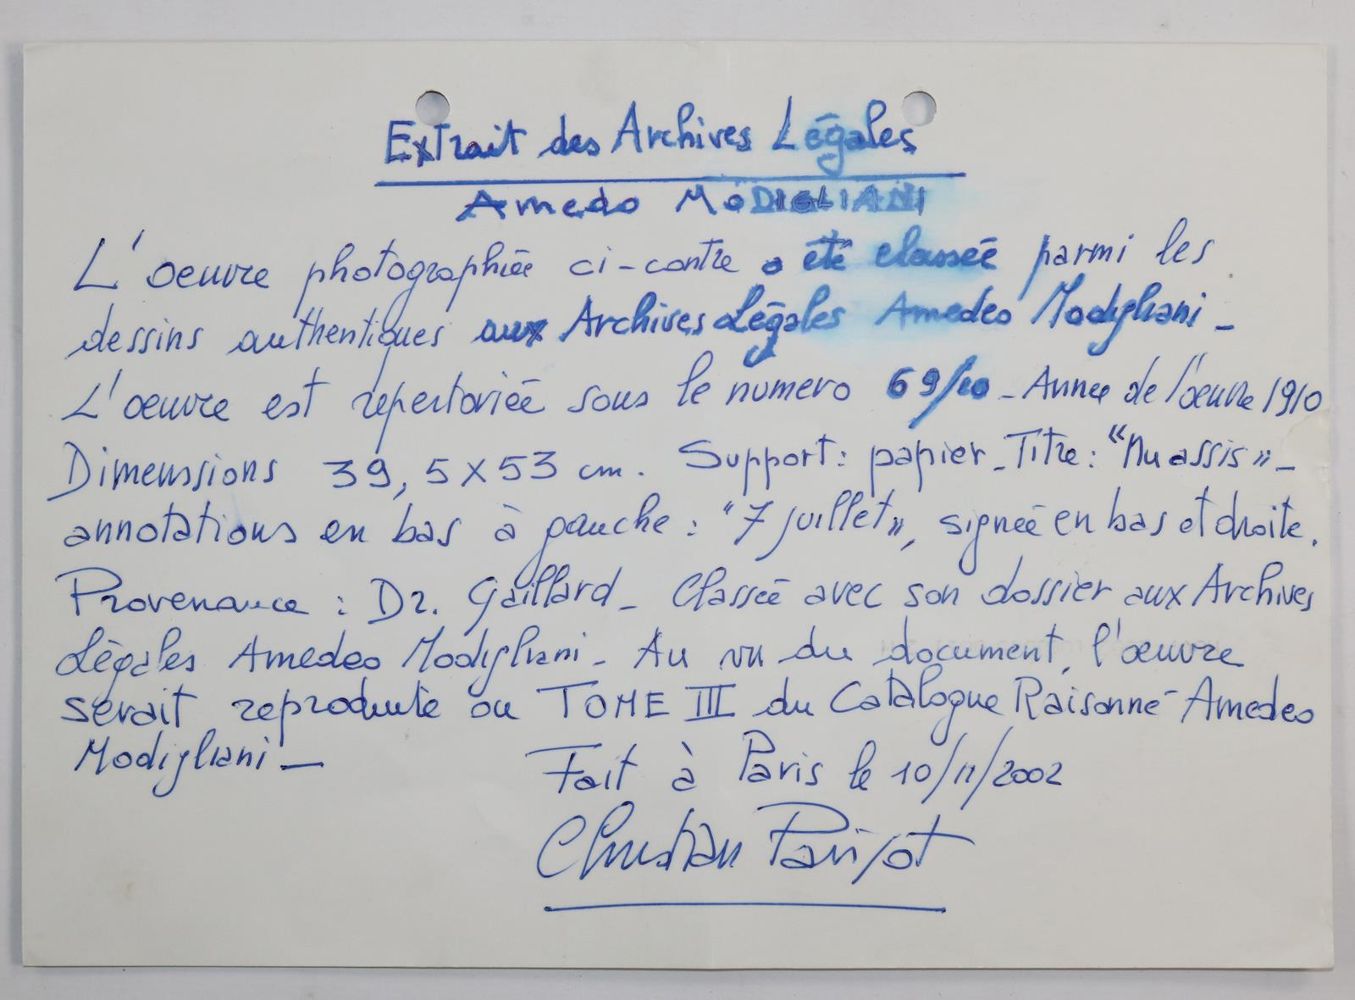 Extrait des Archives Légales
Amedo MODIGLIANI
L'oeuvre photographiée ci-contre a été classée parmi les
dessins authentiques aux Archives Légales Amedeo Modigliani -
L'oeuvre est repertoriée sous le numero 69/10 - Annee de l'oeuvre 1910
Dimenssions 39,5 x 53 cm. Support: papier - Titre: "Nu assis" -
annotations en bas à gauche: "7 juillet", signeé en bas et droite.
Provenance : Dr. Gaillard - Classée avec son dossier aux Archives
Légales Amedeo Modigliani - Au vu du document, l'œuvre
serait reproduite au TOME III du Catalogue Raisonné - Amedeo
Modigliani -
Fait à Paris le 10/11/2002
Christian Parisot